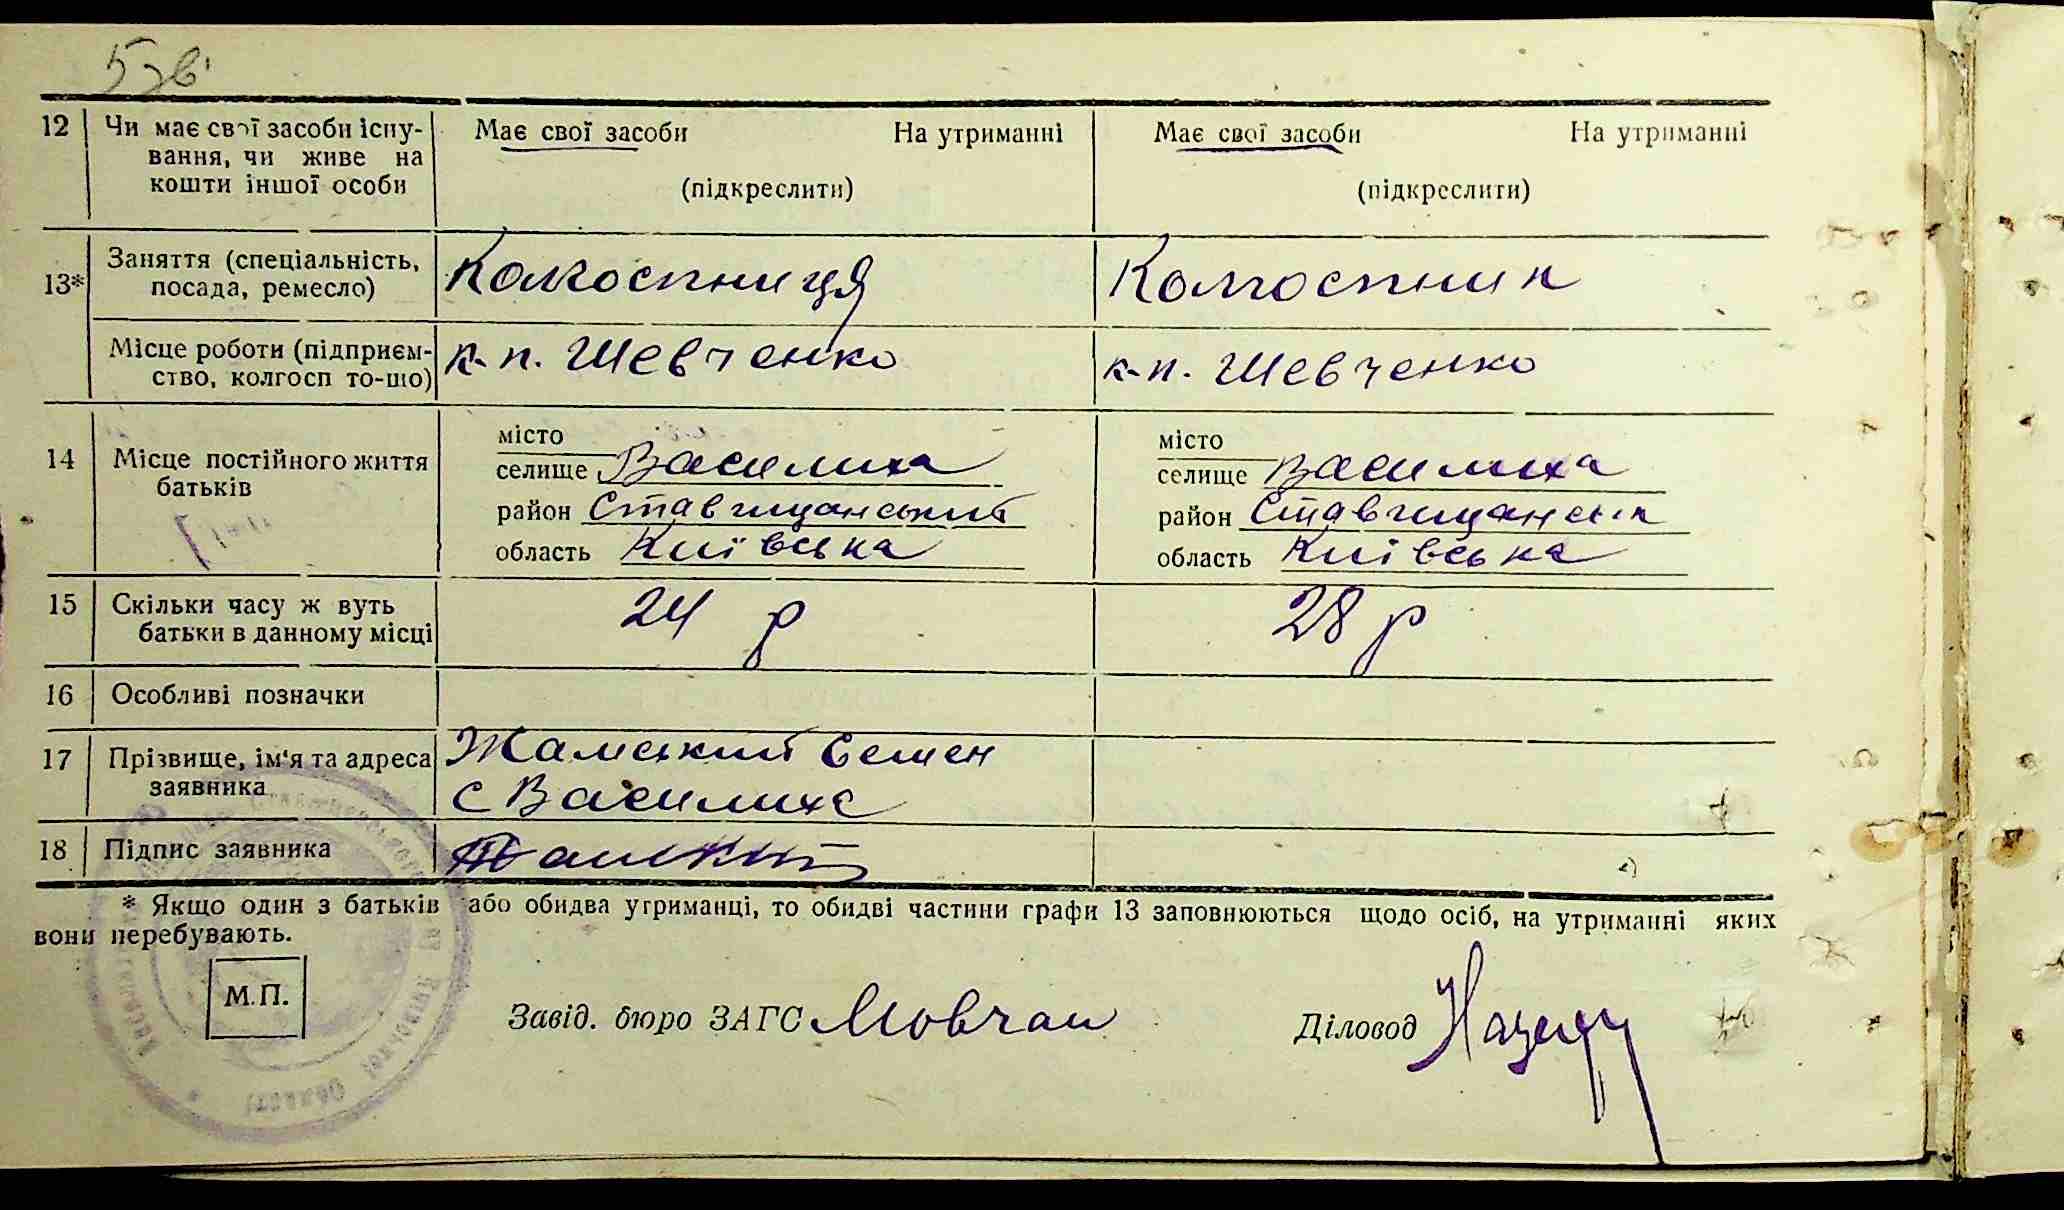 5 зв
12 Чи має свої засоби існу- Має свої засоби На утриманні Має свої засоби На утриманні
вання, чи живе на
кошти іншої особи (підкреслити) (підкреслити)
13* Заняття (спеціальність, Колгоспниця Колгоспник
посада, ремесло)
Місце роботи (підприєм- к-п. Шевченко к-п. Шевченко
ство, колгосп то-що)
місто місто
14 Місце постійного життя селище Василиха селище Василиха
батьків район Ставищанський район Ставищанськ
область Київська область Київська
15 Скільки часу ж вуть 24 р 28 р
батьки в данному місці
16 Особливі позначки
17 Прізвище, ім'я та адреса Семен
заявника с Василиха
18 Підпис заявника
* Якщо один з батьків або обидва утриманці, то обидві частини графи 13 заповнюються щодо осіб, на утриманні яких
вони перебувають.
М.П. Завід. бюро ЗАГС Мовчан Діловод
Області